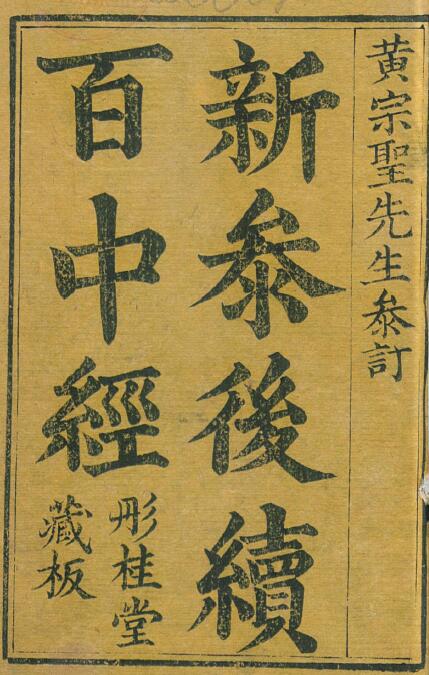 黄宗聖先生叅訂
新叅後續
百中經
彤桂堂
藏板